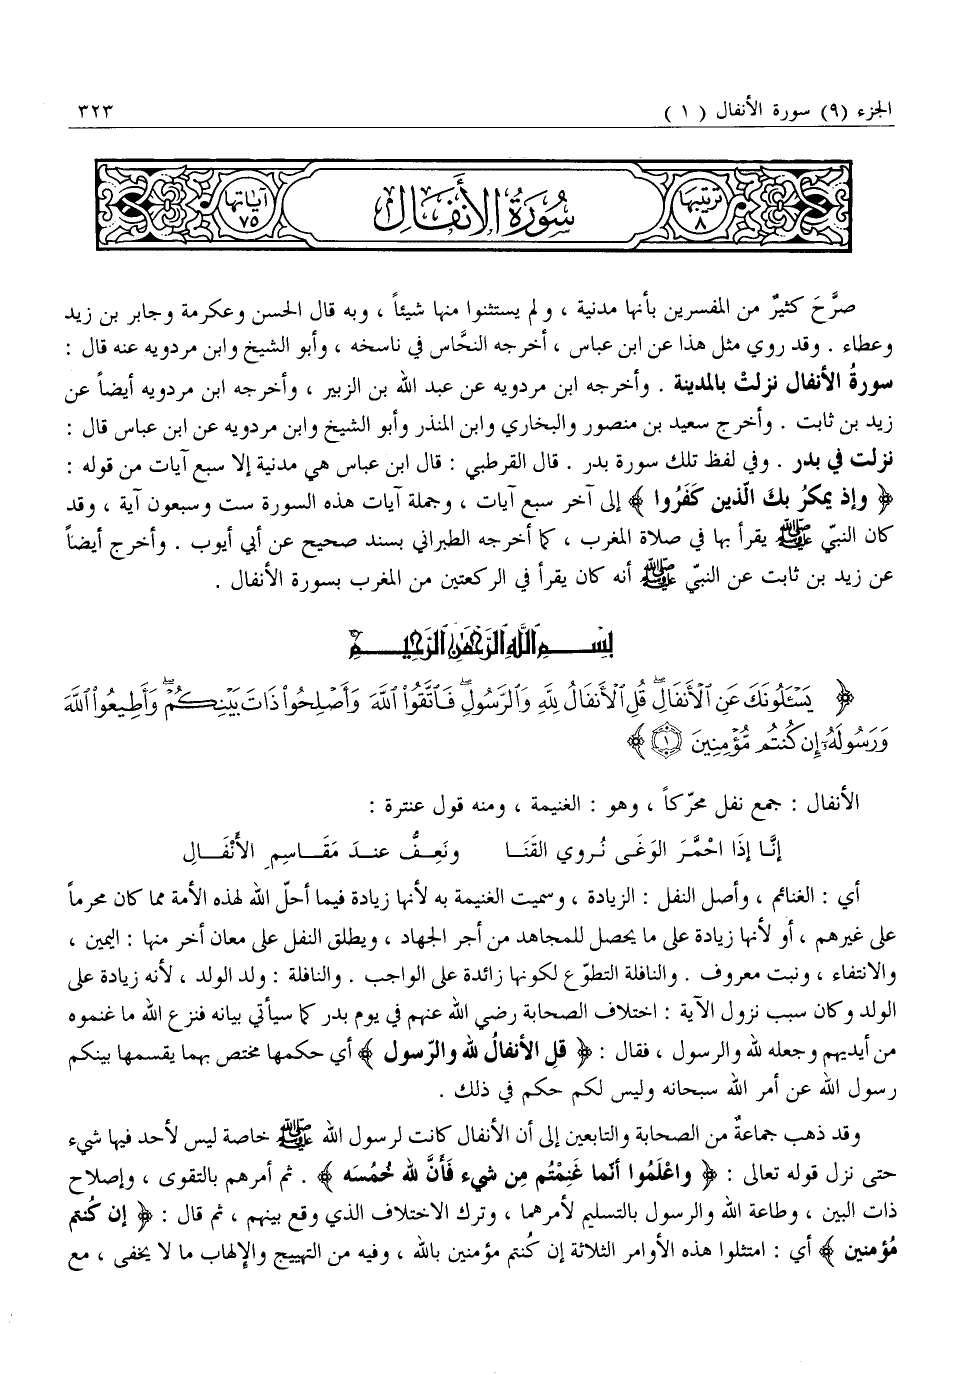 الجزء (٩) سورة الأنفال ( ١ ) ٣٢٣
ترتيبها ٨ سُورَةُ الأَنفَالِ آياتها ٧٥
صرَّحَ كثيرٌ من المفسرين بأنها مدنية ، ولم يستثنوا منها شيئاً ، وبه قال الحسن وعكرمة وجابر بن زيد
وعطاء . وقد روي مثل هذا عن ابن عباس ، أخرجه النحَّاس في ناسخه ، وأبو الشيخ وابن مردويه عنه قال :
سورةُ الأنفال نزلتْ بالمدينة . وأخرجه ابن مردويه عن عبد الله بن الزبير ، وأخرجه ابن مردويه أيضاً عن
زيد بن ثابت . وأخرج سعيد بن منصور والبخاري وابن المنذر وأبو الشيخ وابن مردويه عن ابن عباس قال :
نزلت في بدر . وفي لفظ تلك سورة بدر . قال القرطبي : قال ابن عباس هي مدنية إلا سبع آيات من قوله :
﴿ وإذ يمكرُ بكَ الّذين كَفَرُوا ﴾ إلى آخر سبع آيات ، وجملة آيات هذه السورة ست وسبعون آية ، وقد
كان النبيّ ﷺ يقرأ بها في صلاة المغرب ، كما أخرجه الطبراني بسند صحيح عن أبي أيوب . وأخرج أيضاً
عن زيد بن ثابت عن النبيّ ﷺ أنه كان يقرأ في الركعتين من المغرب بسورة الأنفال .
بِسْمِ اللَّهِ الرَّحْمَٰنِ الرَّحِيمِ
﴿ يَسْـَٔلُونَكَ عَنِ ٱلْأَنفَالِۖ قُلِ ٱلْأَنفَالُ لِلَّهِ وَٱلرَّسُولِۖ فَٱتَّقُوا۟ ٱللَّهَ وَأَصْلِحُوا۟ ذَاتَ بَيْنِكُمْۖ وَأَطِيعُوا۟ ٱللَّهَ
وَرَسُولَهُۥٓ إِن كُنتُم مُّؤْمِنِينَ ١ ﴾
الأنفال : جمع نفل محرّكاً ، وهو : الغنيمة ، ومنه قول عنترة :
إنَّا إذَا احْمَّرَ الوَغَى نُروي القَنَا ونَعِفُّ عندَ مَقَاسِمِ الأَنْفَالِ
أي : الغنائم ، وأصل النفل : الزيادة ، وسميت الغنيمة به لأنها زيادة فيما أحلّ الله لهذه الأمة مما كان محرماً
على غيرهم ، أو لأنها زيادة على ما يحصل للمجاهد من أجر الجهاد ، ويطلق النفل على معان أخر منها : اليمين ،
والانتفاء ، ونبت معروف . والنافلة التطوّع لكونها زائدة على الواجب . والنافلة : ولد الولد ، لأنه زيادة على
الولد وكان سبب نزول الآية : اختلاف الصحابة رضي الله عنهم في يوم بدر كما سيأتي بيانه فنزع الله ما غنموه
من أيديهم وجعله لله والرسول ، فقال : ﴿ قلِ الأنفالُ لله والرّسول ﴾ أي حكمها مختص بهما يقسمها بينكم
رسول الله عن أمر الله سبحانه وليس لكم حكم في ذلك .
وقد ذهب جماعةٌ من الصحابة والتابعين إلى أن الأنفال كانت لرسول الله ﷺ خاصة ليس لأحد فيها شيء
حتى نزل قوله تعالى : ﴿ واعْلَمُوا أنّما غَنِمْتُم مِن شيء فَأَنَّ لله خُمُسَه ﴾ . ثم أمرهم بالتقوى ، وإصلاح
ذات البين ، وطاعة الله والرسول بالتسليم لأمرهما ، وترك الاختلاف الذي وقع بينهم ، ثم قال : ﴿ إن كُنتم
مُؤمنين ﴾ أي : امتثلوا هذه الأوامر الثلاثة إن كُنتم مؤمنين بالله ، وفيه من التهييج والإلهاب ما لا يخفى ، مع